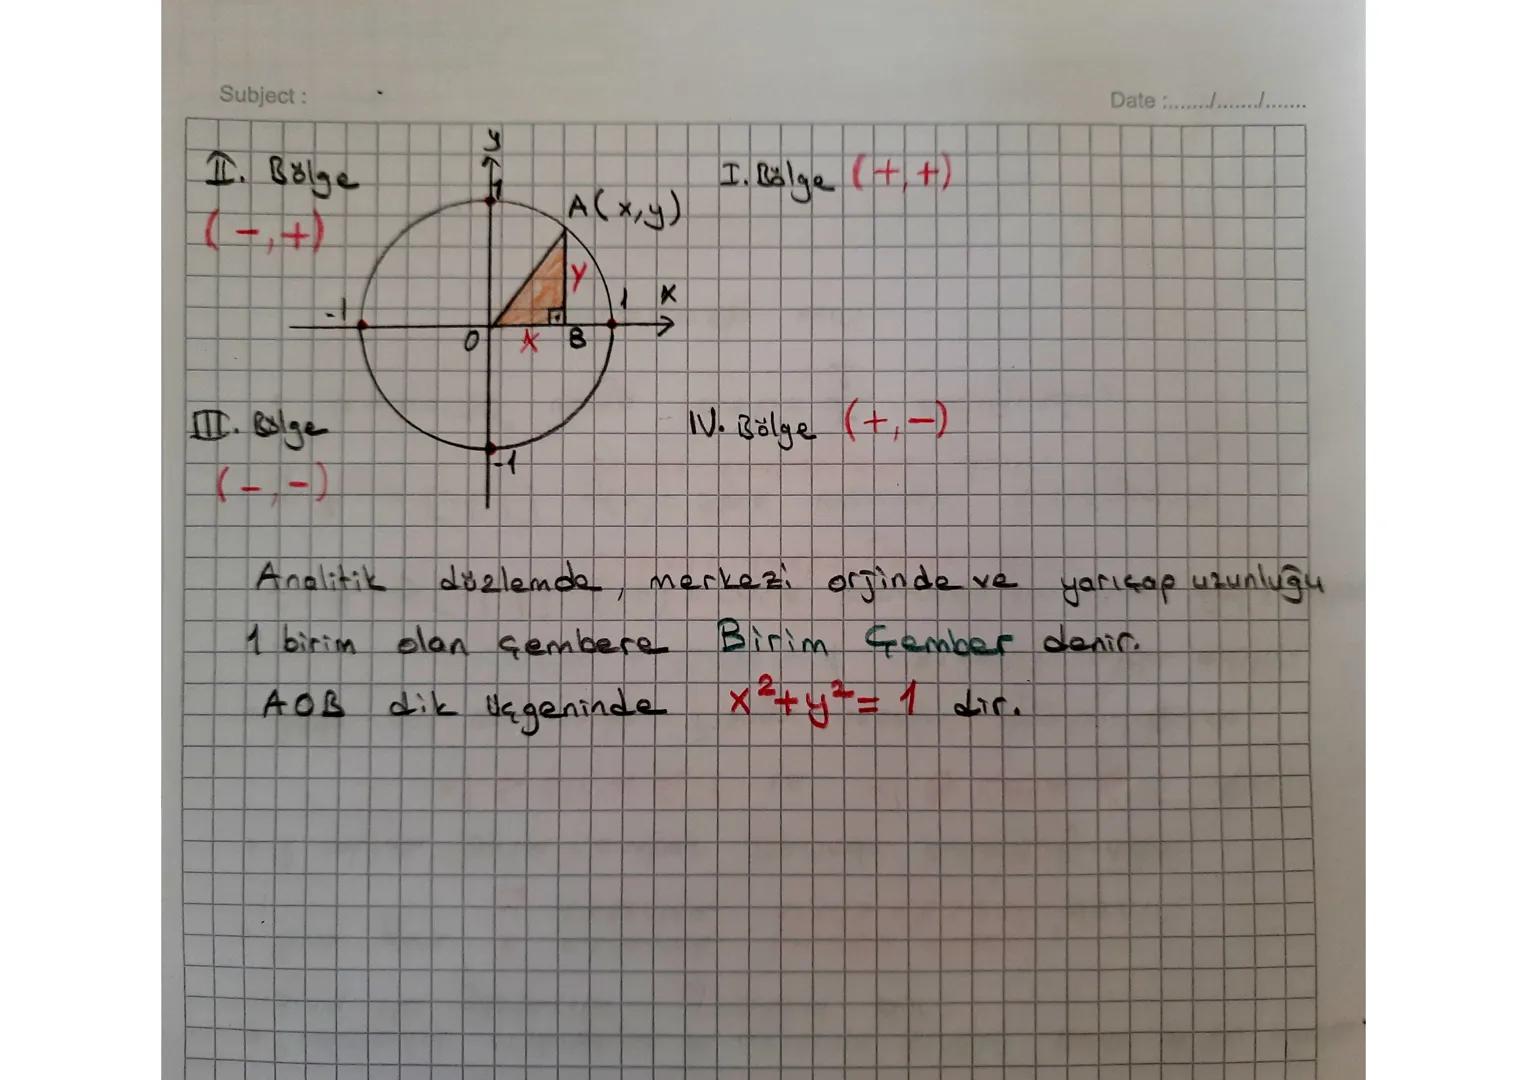 Subject :
Date :......./......./.......
y
II. Bölge
I. Bölge (+,+)
1
A(x,y)
(-,+)
y
-1
1
x
O
x
B
III. Bölge
IV. Bölge (+,-)
-1
(-,-)
Analitik düzlemde, merkezi orjinde ve yarıçap uzunluğu
1 birim olan çembere Birim Çember denir.
AOB dik üçgeninde x²+y²= 1 dir.